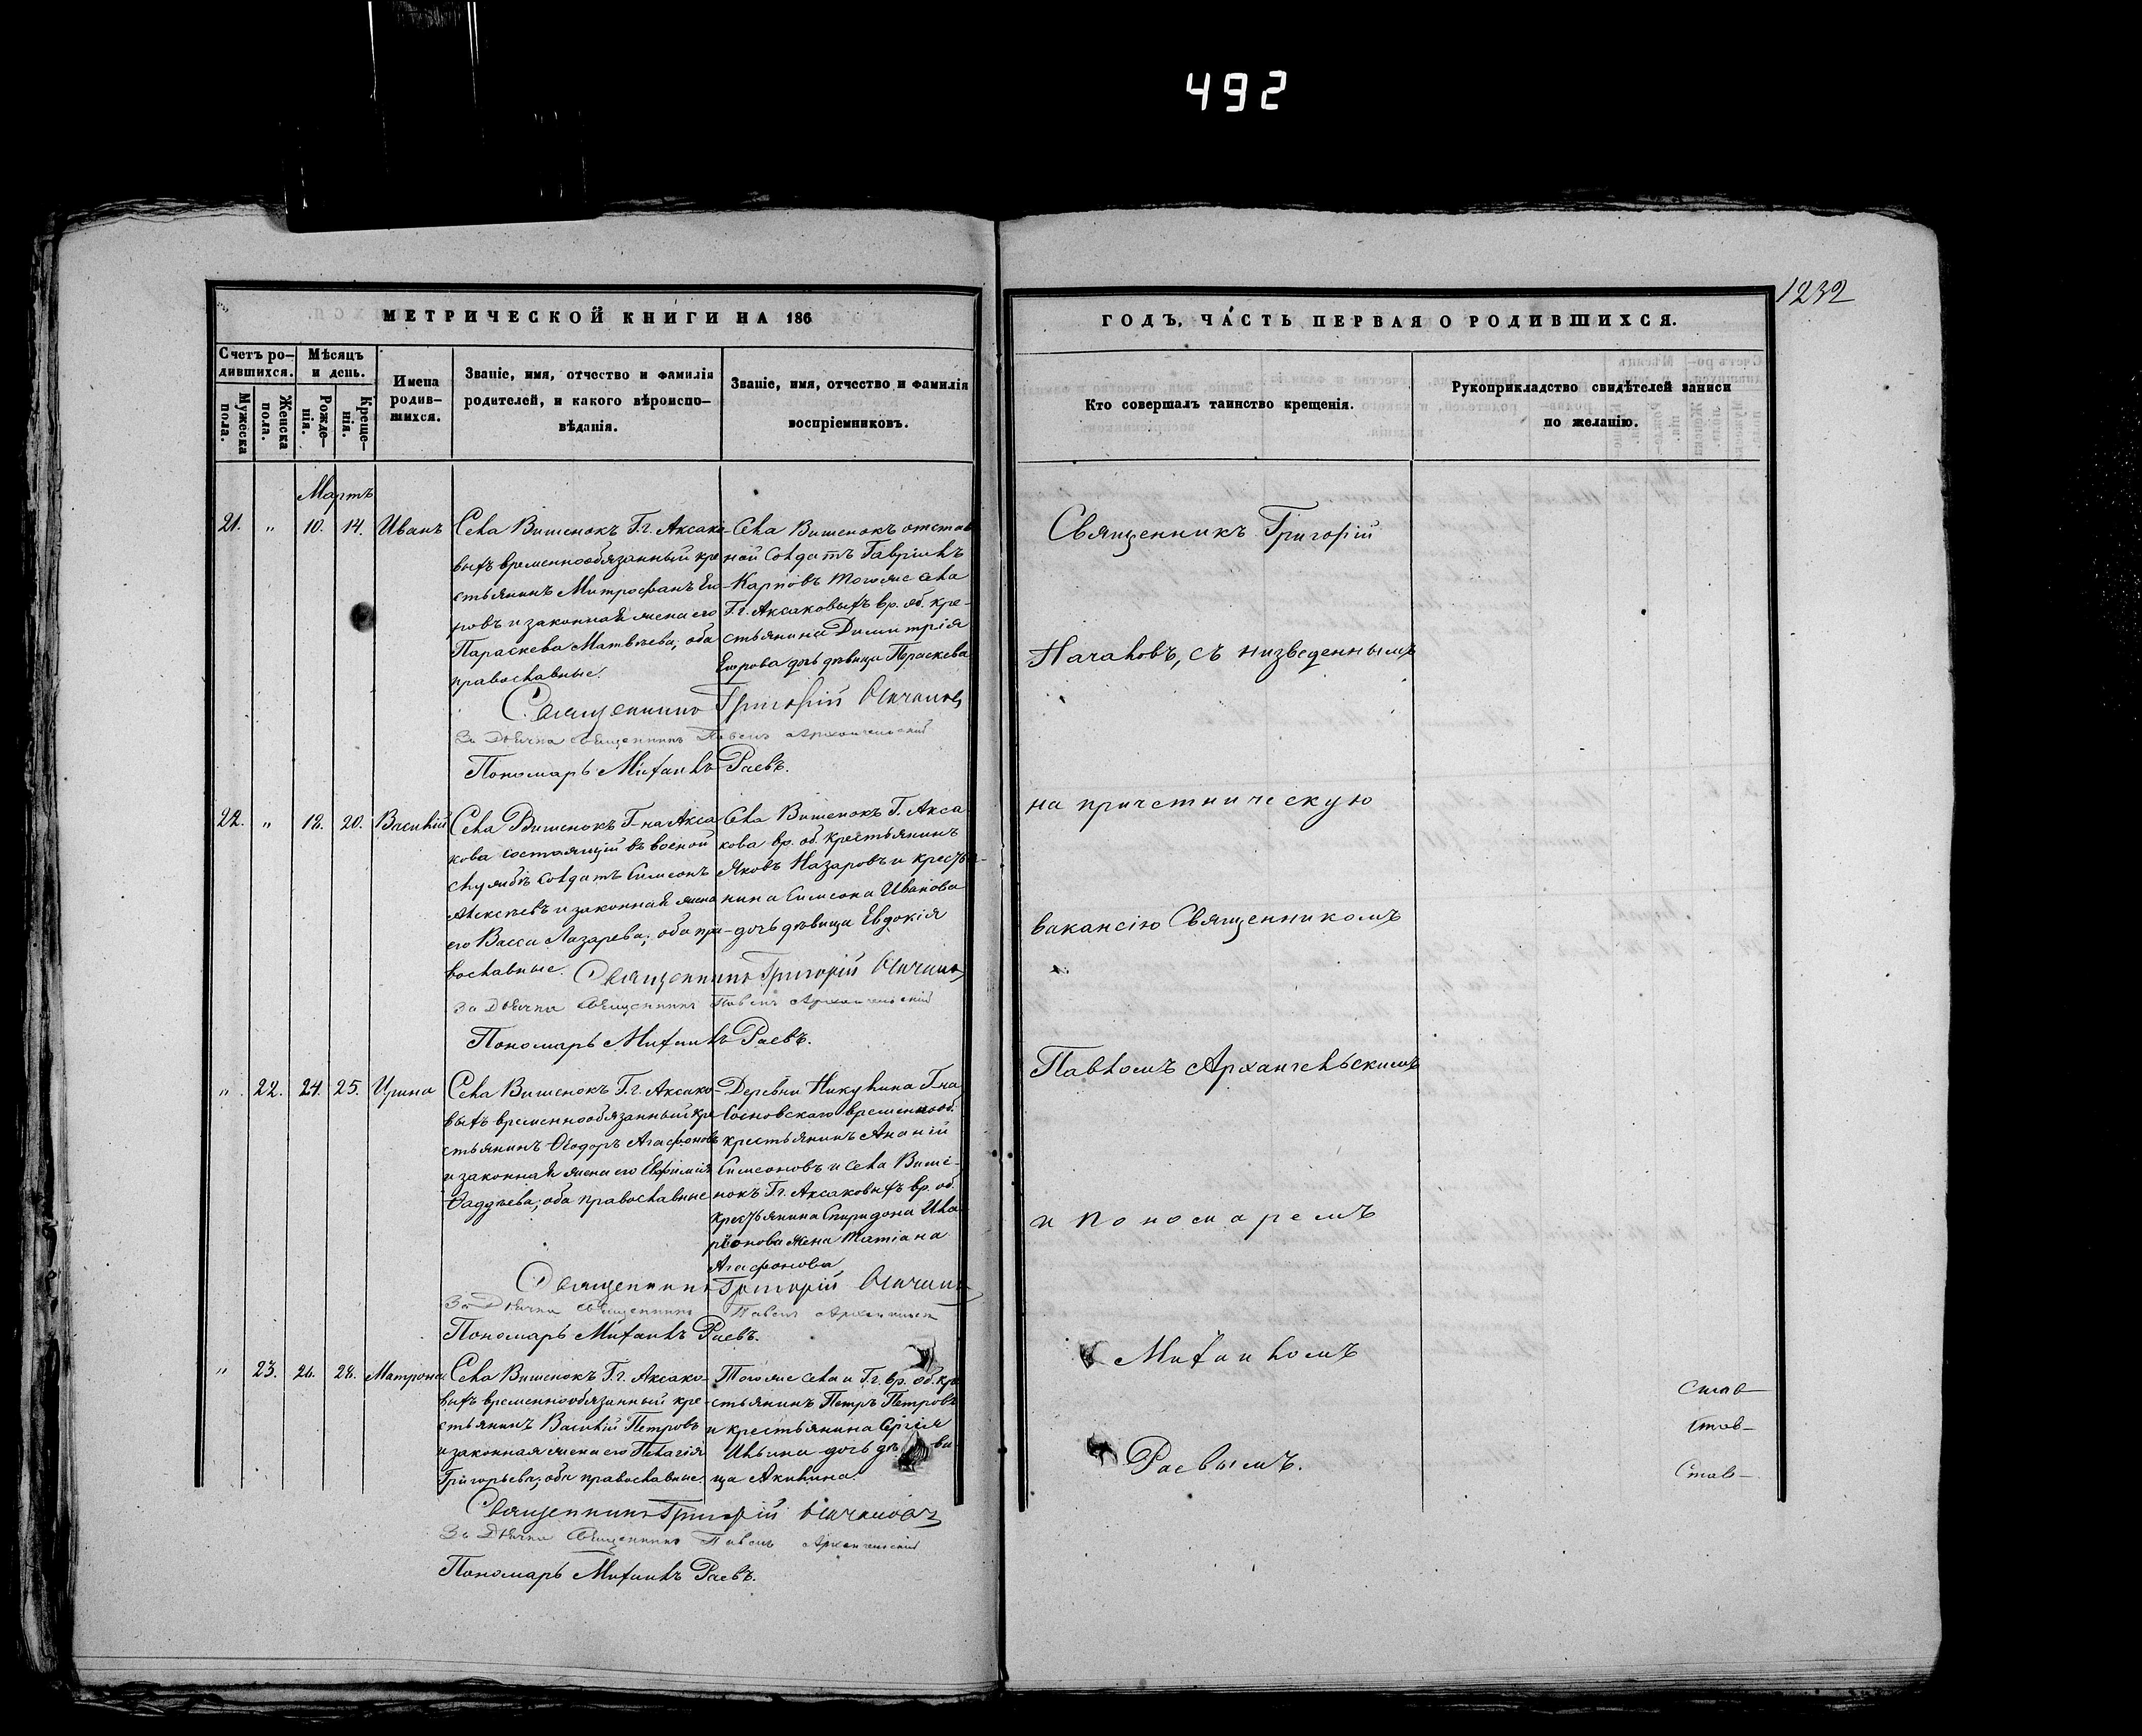 492
1232
МЕТРИЧЕСКОЙ КНИГИ НА 186
ГОДЪ, ЧАСТЬ ПЕРВАЯ О РОДИВШИХСЯ.
Счетъ ро-
дившихся.
Мѣсяцъ
и день.
Мужеска
пола.
Женска
пола.
Рожде-
нія.
Креще-
нія.
Имена
родив-
шихся.
Званіе, имя, отчество и фамилія
родителей, и какого вѣроиспо-
вѣданія.
Званіе, имя, отчество и фамилія
воспріемниковъ.
Кто совершалъ таинство крещенія.
Рукоприкладство свидѣтелей записи
по желанію.
Мартъ
21. " 10. 14. Иванъ
Села Вишенокъ Г.г. Аксако-
выхъ временнообязанный кре
стьянинъ Митрофанъ Его-
ровъ и законная жена его
Параскева Матвѣева; оба
православные.
Села Вишенокъ отстав
ной солдатъ Гавріилъ
Карповъ тогоже села
Г.г. Аксаковыхъ вр. об. кре-
стьянина Димитрія
Егорова дочь дѣвица Параскева
Священникъ Григорій Началовъ
За Дьячка Священникъ Павелъ Архангельскій
Пономарь Михаилъ Раевъ.
22. " 18. 20. Василій
Села Вишенокъ Г-на Акса
кова состоящій въ военой
службѣ солдатъ Симеонъ
Алексѣевъ и законная жена
его Васса Лазарева; оба пра-
вославные.
Села Вишенокъ Г. Акса
кова вр. об. крестьянинъ
Яковъ Назаровъ и крестья-
нина Симеона Иванова
дочь дѣвица Евдокія
Священникъ Григорій Началовъ
За Дьячка Священникъ Павелъ Архангельскій
Пономарь Михаилъ Раевъ.
" 22. 24. 25. Ирина
Села Вишенокъ Г.г. Аксако-
выхъ временнообязанный кре
стьянинъ Ѳеодоръ Агафоновъ
и законная жена его Евфимія
Ѳаддѣева; оба православные
Деревни Никулина Г-на
Сосновскаго временнооб.
крестьянинъ Ананій
Симеоновъ и села Више-
нокъ Г.г. Аксаковыхъ вр. об.
крестьянина Спиридона Ила
ріонова жена Татіана
Агафонова
Священникъ Григорій Началовъ
За Дьячка Священникъ Павелъ Архангельск
Пономарь Михаилъ Раевъ.
" 23. 26. 28. Матрона
Села Вишенокъ Г.г. Аксако-
выхъ временнообязанный кре-
стьянинъ Василій Петровъ
и законная жена его Пелагія
Григорьева; оба православные.
Тогоже села и Г.г. вр. об. кре
стьянинъ Петръ Петровъ
и крестьянина Сергія
Ильина дочь дѣви-
ца Акилина.
Священникъ Григорій Началовъ
За Дьячка Священникъ Павелъ Архангельскій
Пономарь Михаилъ Раевъ.
Священникъ Григорій
Началовъ, съ низведеннымъ
на причетническую
вакансію Священникомъ
Павломъ Архангельскимъ
и пономаремъ
Михаиломъ
Раевымъ.